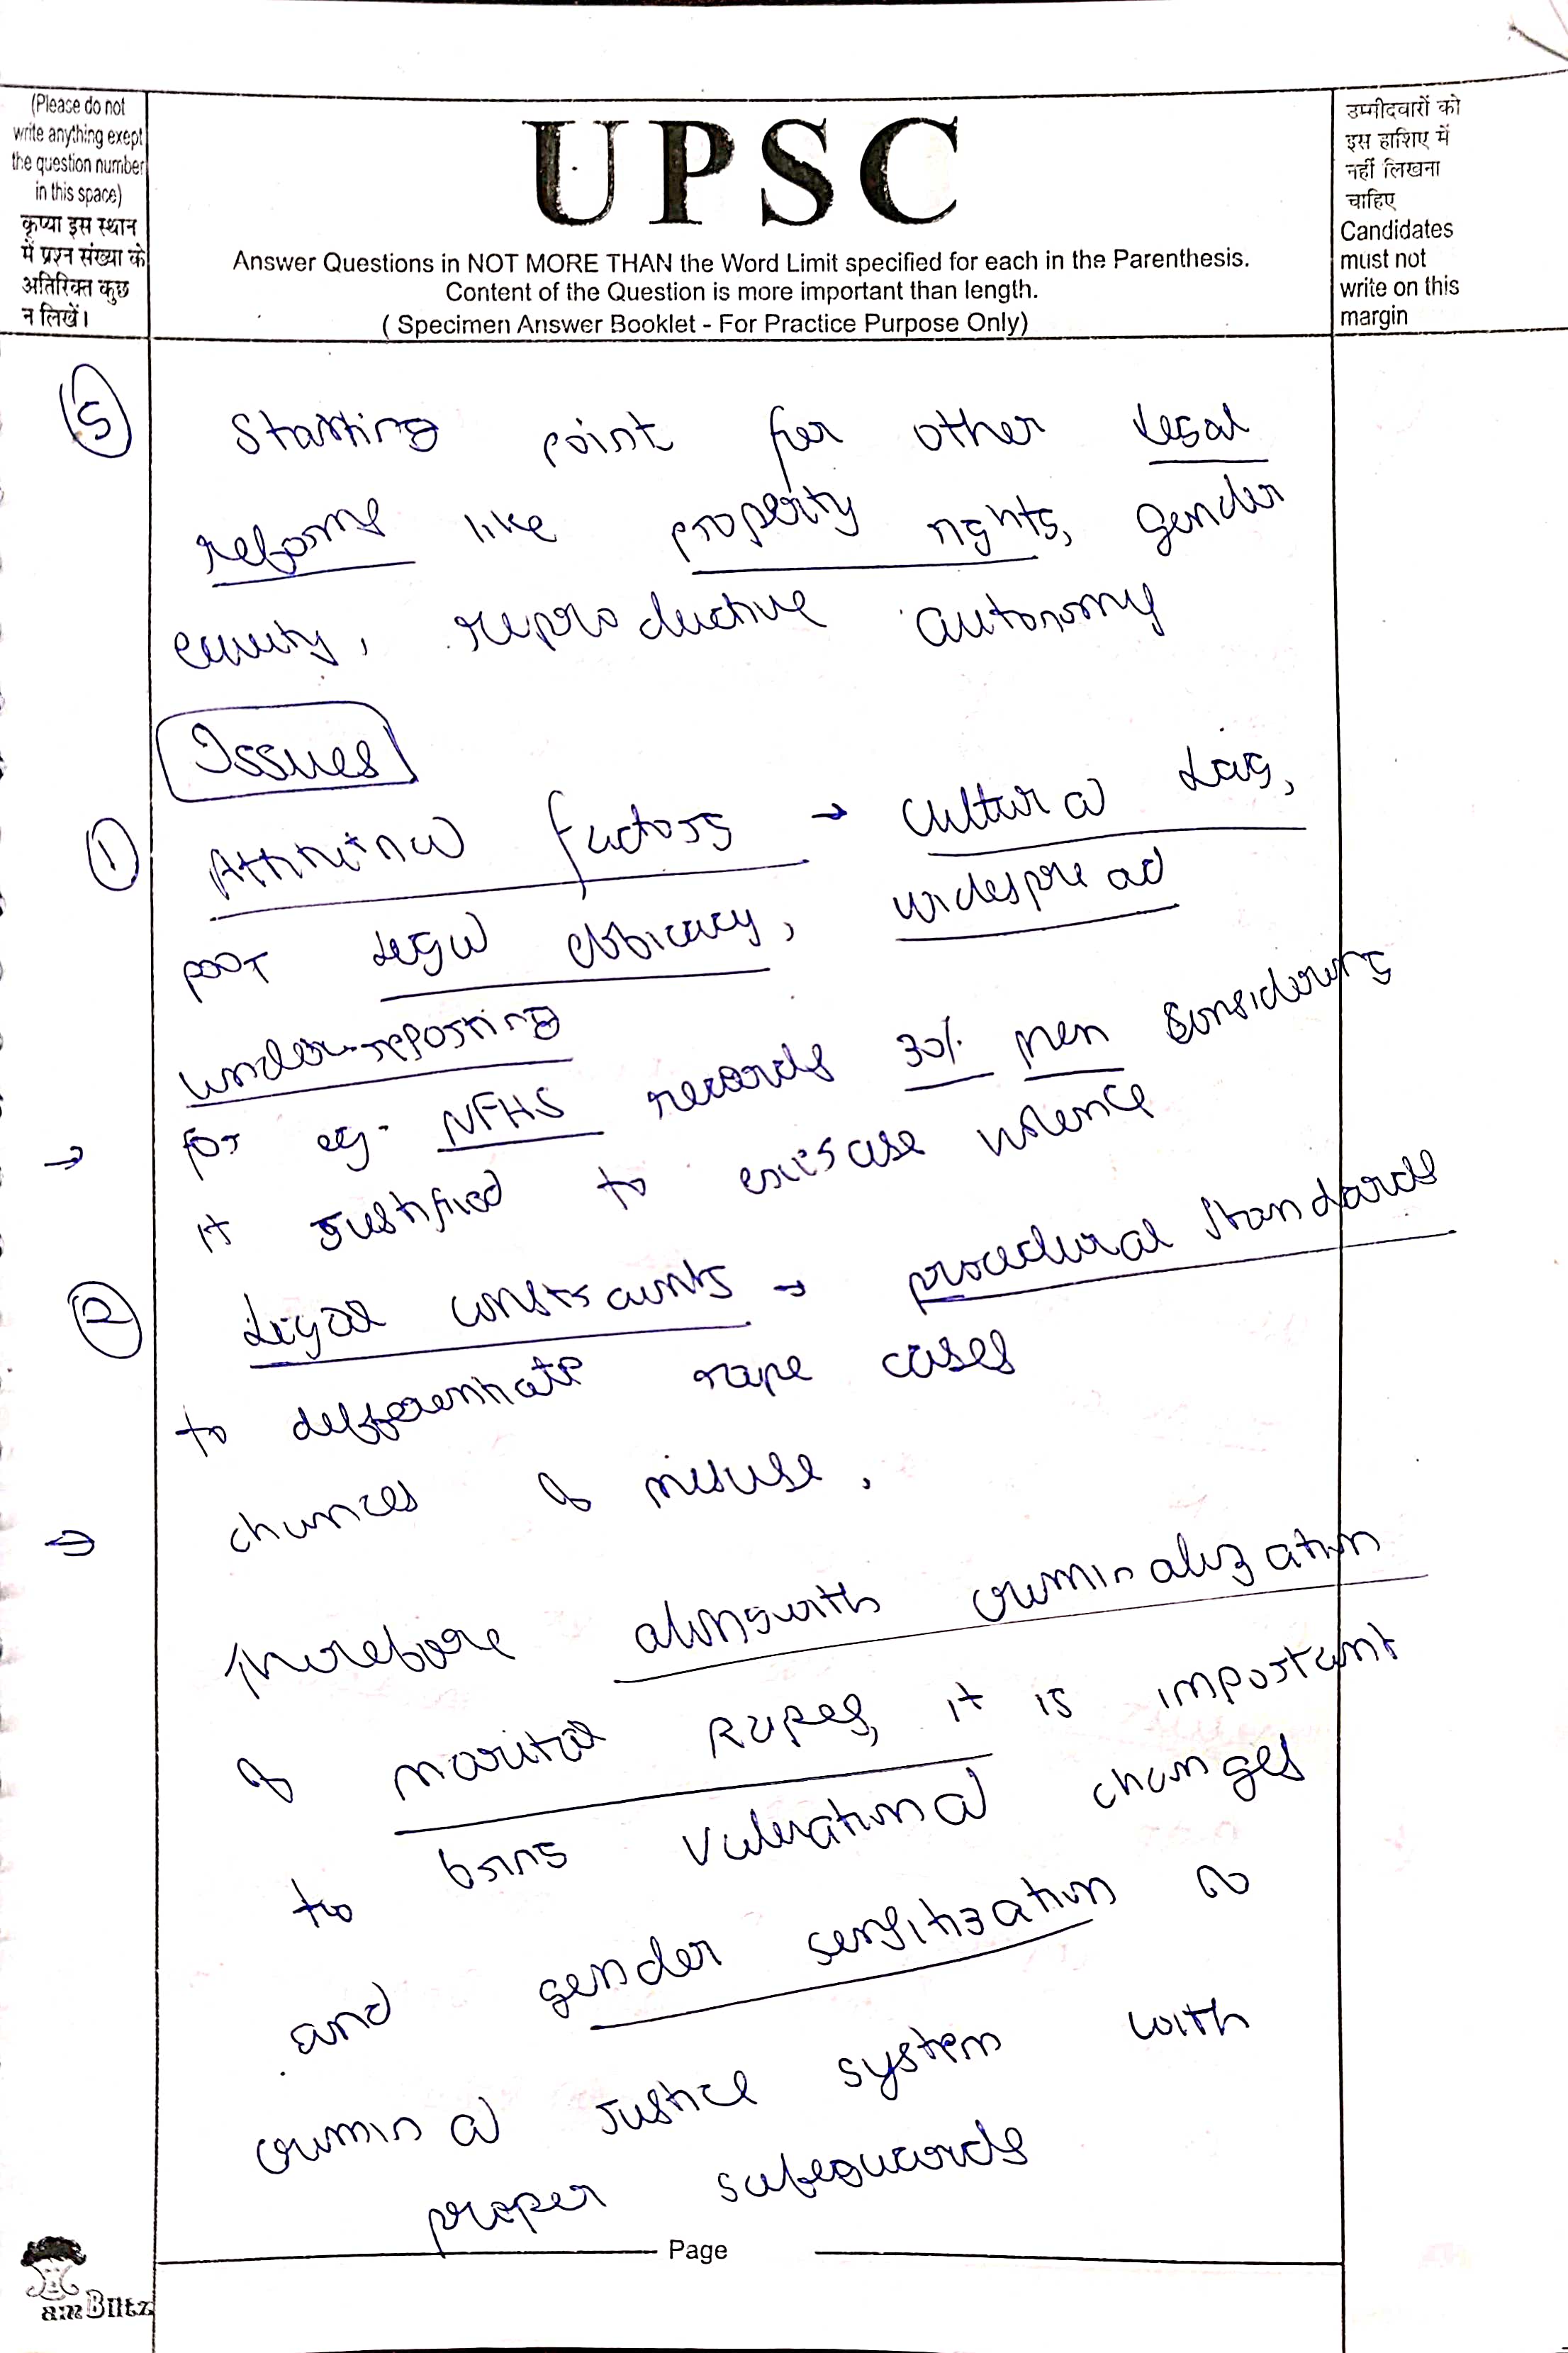 (Please do not
write anything exept
the question number
in this space)
कृप्या इस स्थान
में प्रश्न संख्या के
अतिरिक्त कुछ
न लिखें।
UPSC
Answer Questions in NOT MORE THAN the Word Limit specified for each in the Parenthesis.
Content of the Question is more important than length.
( Specimen Answer Booklet - For Practice Purpose Only)
उम्मीदवारों को
इस हाशिए में
नहीं लिखना
चाहिए
Candidates
must not
write on this
margin
5 Starting point for other legal
reforms like property rights, gender
equity, reproductive autonomy
Issues
1 Attitutnal factors → cultural lag,
poor legal , widespread
under-reporting
→ for eg. NFHS records 30% men considering
it justified to violence
2 Legal constraints → procedural standards
to differentiate rape cases
→ chances of misuse.
Therefore alongwith criminalization
of marital Rapes, it is important
to bring changes
and gender sensitization of
criminal justice system with
proper safeguards
Page
amBlitz